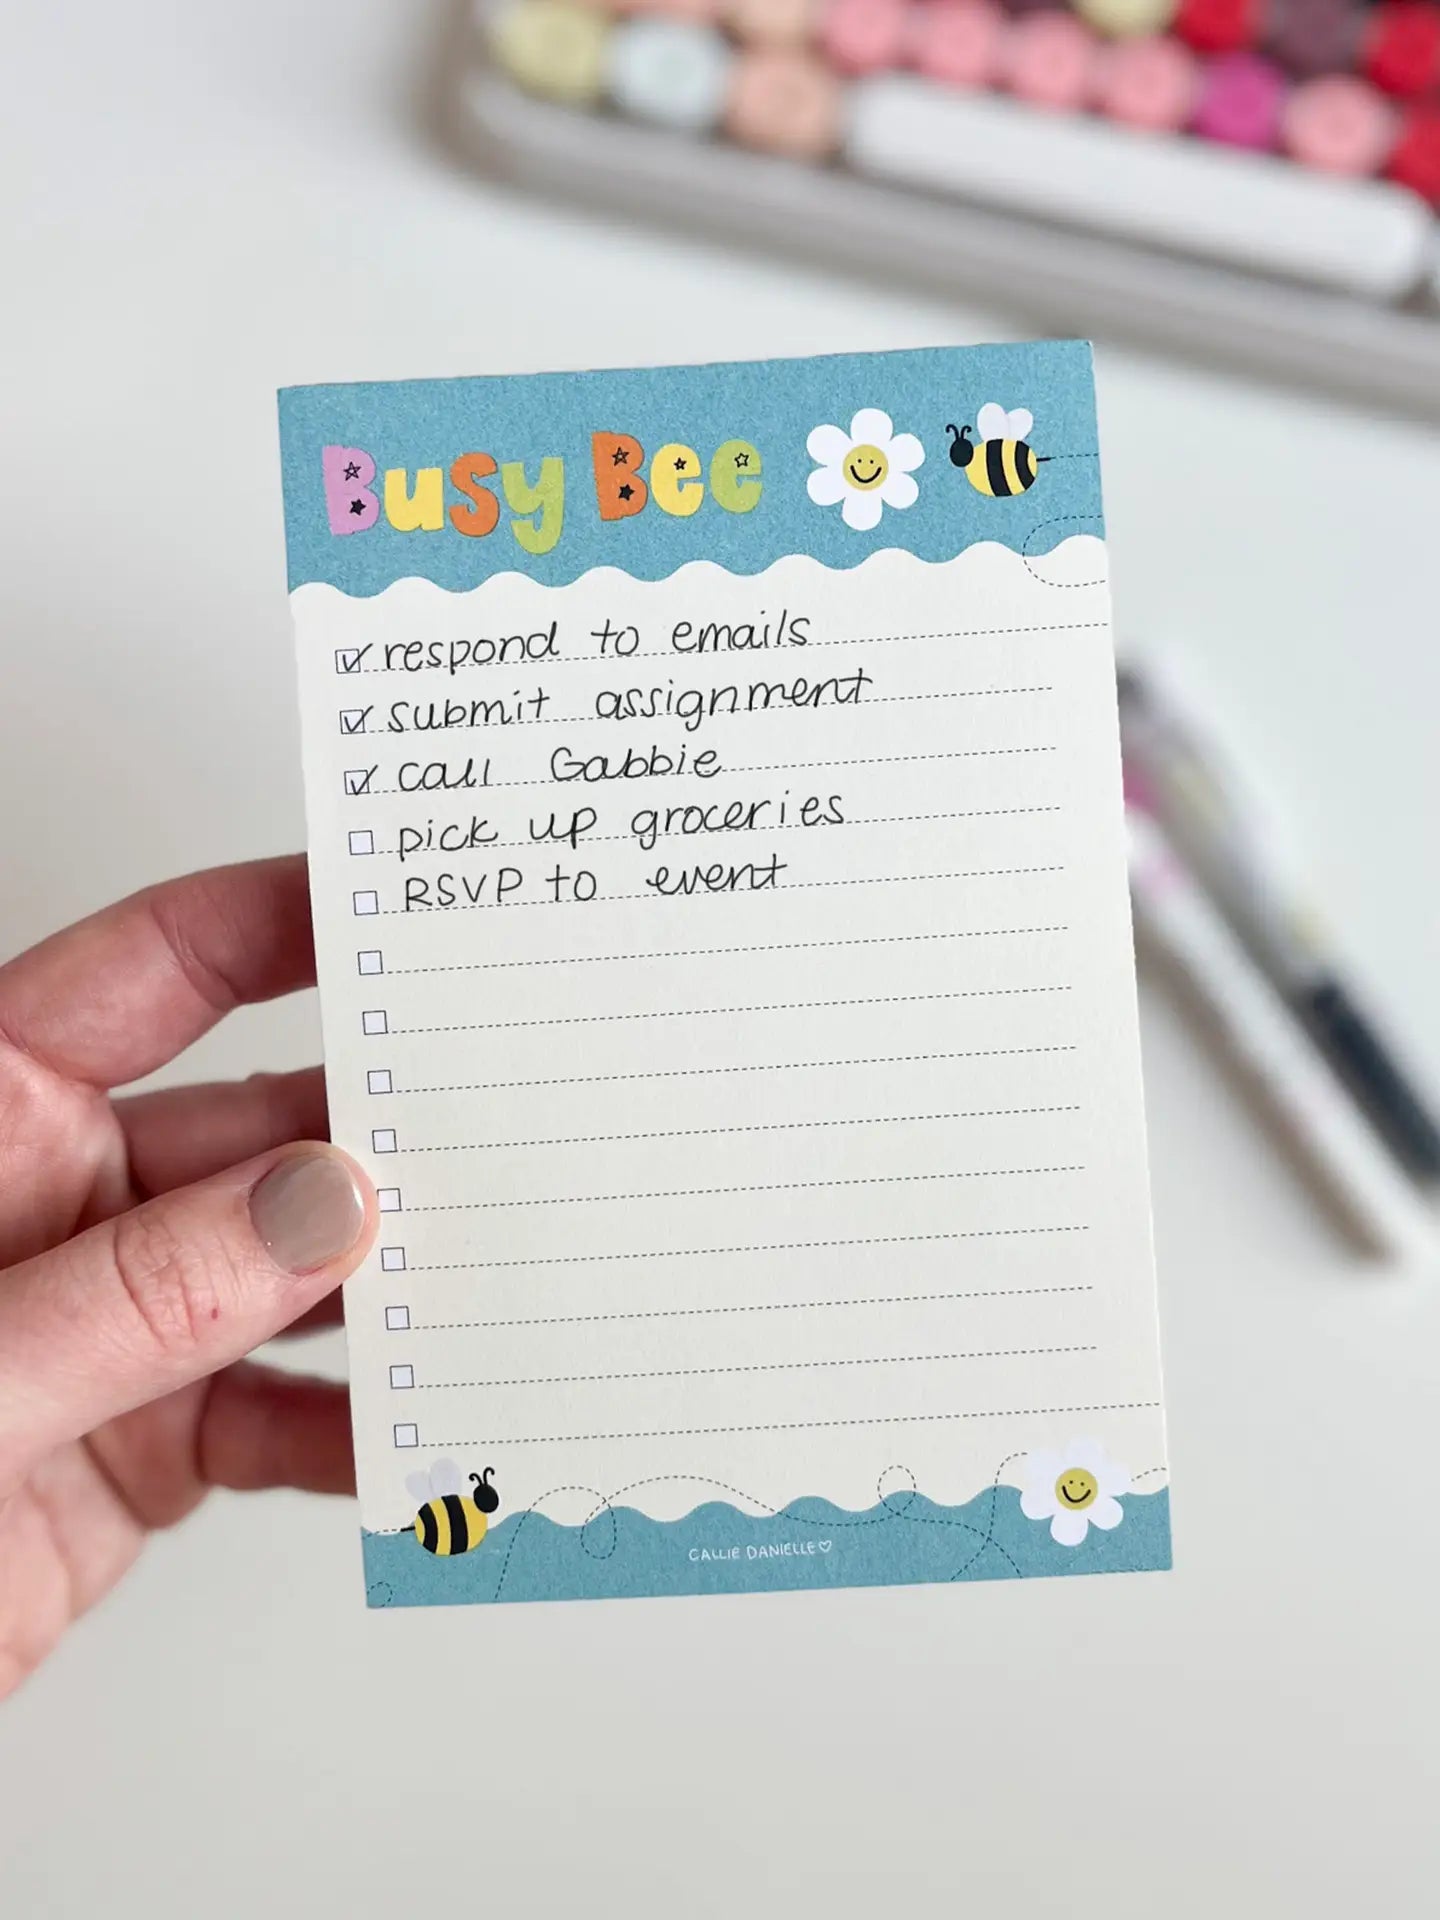 Busy Bee
respond to emails
submit assignment
call Gabbie
pick up groceries
RSVP to event
CALLIE DANIELLE♡